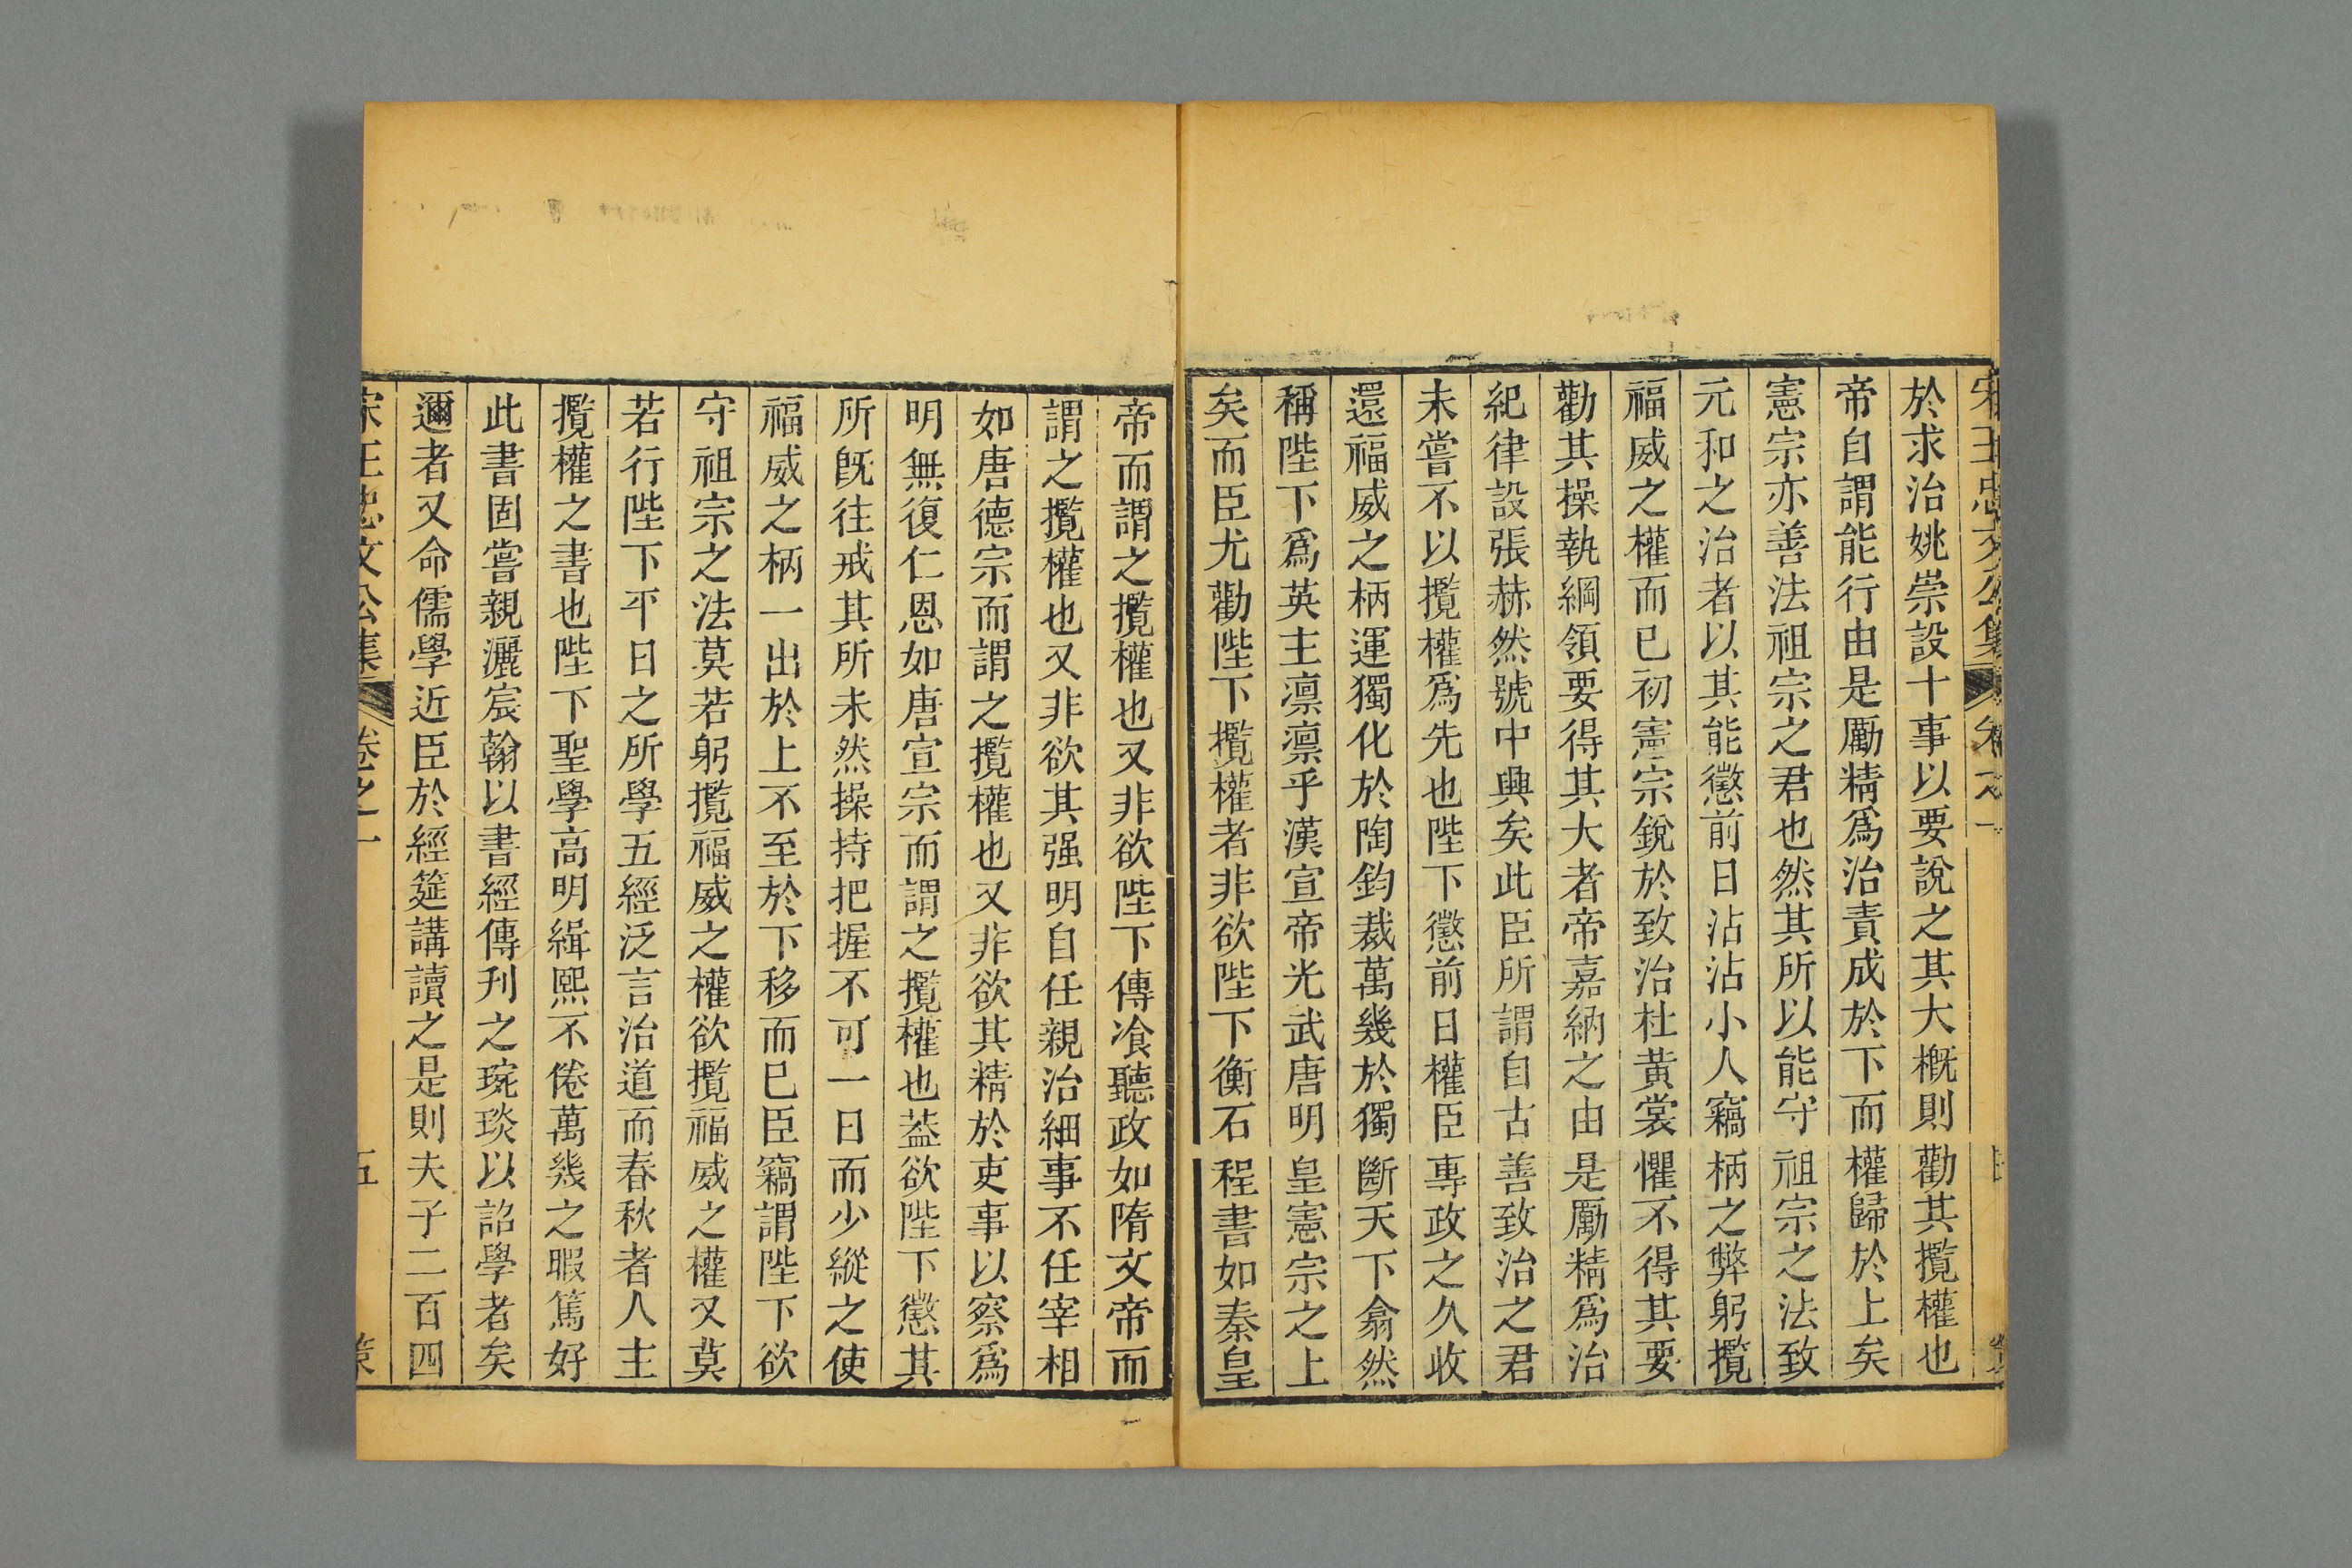 於求治姚崇設十事以要說之其大概則勸其攬權也
帝自謂能行由是勵精爲治責成於下而權歸於上矣
憲宗亦善法祖宗之君也然其所以能守祖宗之法致
元和之治者以其能懲前日沾沾小人竊柄之弊躬攬
福威之權而已初憲宗銳於致治杜黃裳懼不得其要
勸其操執綱領要得其大者帝嘉納之由是勵精爲治
紀律設張赫然號中興矣此臣所謂自古善致治之君
未嘗不以攬權爲先也陛下懲前日權臣專政之久收
還福威之柄運獨化於陶鈞裁萬幾於獨斷天下翕然
稱陛下爲英主凛凛乎漢宣帝光武唐明皇憲宗之上
矣而臣尤勸陛下攬權者非欲陛下衡石程書如秦皇
帝而謂之攬權也又非欲陛下傳飡聽政如隋文帝而
謂之攬權也又非欲其强明自任親治細事不任宰相
如唐德宗而謂之攬權也又非欲其精於吏事以察爲
明無復仁恩如唐宣宗而謂之攬權也葢欲陛下懲其
所旣往戒其所未然操持把握不可一日而少縱之使
福威之柄一出於上不至於下移而已臣竊謂陛下欲
守祖宗之法莫若躬攬福威之權欲攬福威之權又莫
若行陛下平日之所學五經泛言治道而春秋者人主
攬權之書也陛下聖學高明緝熙不倦萬幾之暇篤好
此書固嘗親灑宸翰以書經傳刋之琬琰以詔學者矣
邇者又命儒學近臣於經筵講讀之是則夫子二百四
宋王忠文公集 卷之一 五